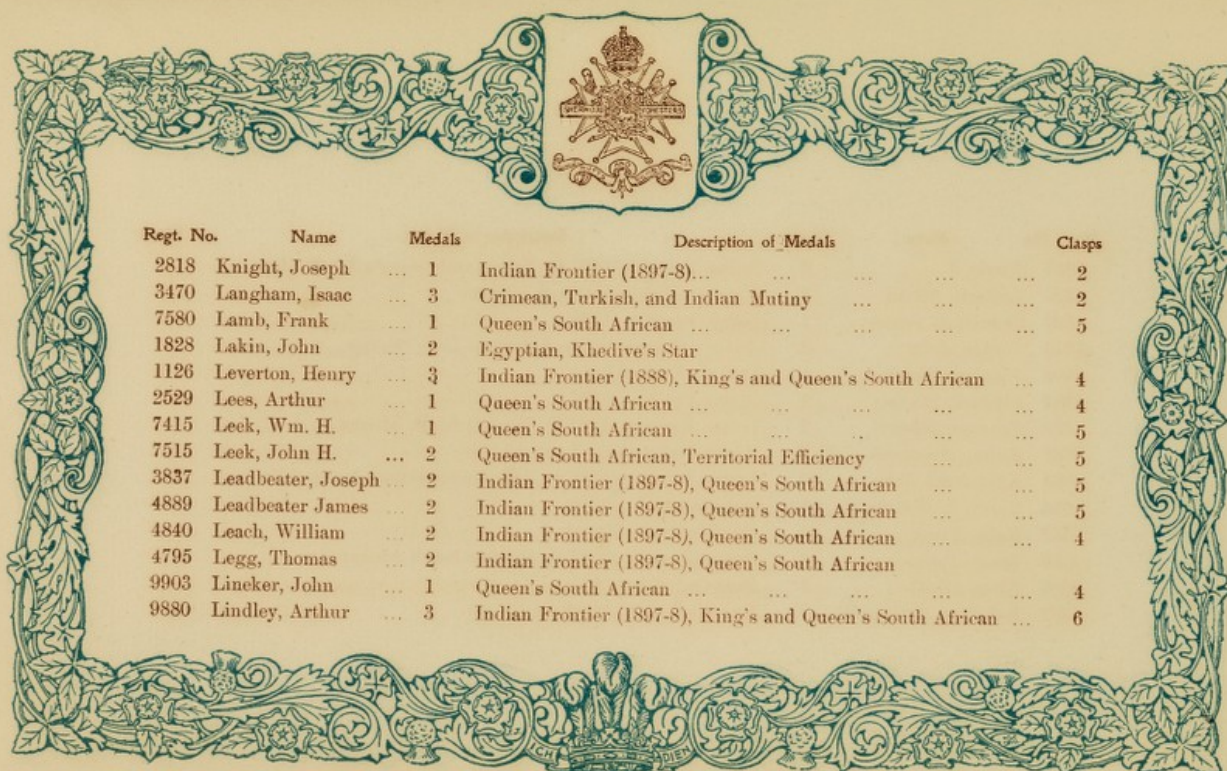 Regt. No. Name Medals Description of Medals Clasps
2818 Knight, Joseph ... 1 Indian Frontier (1897-8)... ... ... ... ... 2
3470 Langham, Isaac ... 3 Crimean, Turkish, and Indian Mutiny ... ... ... 2
7580 Lamb, Frank ... 1 Queen's South African ... ... ... ... ... 5
1828 Lakin, John ... 2 Egyptian, Khedive's Star
1126 Leverton, Henry ... 3 Indian Frontier (1888), King's and Queen's South African ... 4
2529 Lees, Arthur ... 1 Queen's South African ... ... ... ... ... 4
7415 Leek, Wm. H. ... 1 Queen's South African ... ... .. ... ... 5
7515 Leek, John H. ... 2 Queen's South African, Territorial Efficiency ... ... 5
3837 Leadbeater, Joseph ... 2 Indian Frontier (1897-8), Queen's South African ... ... 5
4889 Leadbeater James ... 2 Indian Frontier (1897-8), Queen's South African ... ... 5
4840 Leach, William ... 2 Indian Frontier (1897-8), Queen's South African ... ... 4
4795 Legg, Thomas ... 2 Indian Frontier (1897-8), Queen's South African
9903 Lineker, John ... 1 Queen's South African ... ... ... ... ... 4
9880 Lindley, Arthur ... 3 Indian Frontier (1897-8), King's and Queen's South African ... 6
ICH DIEN